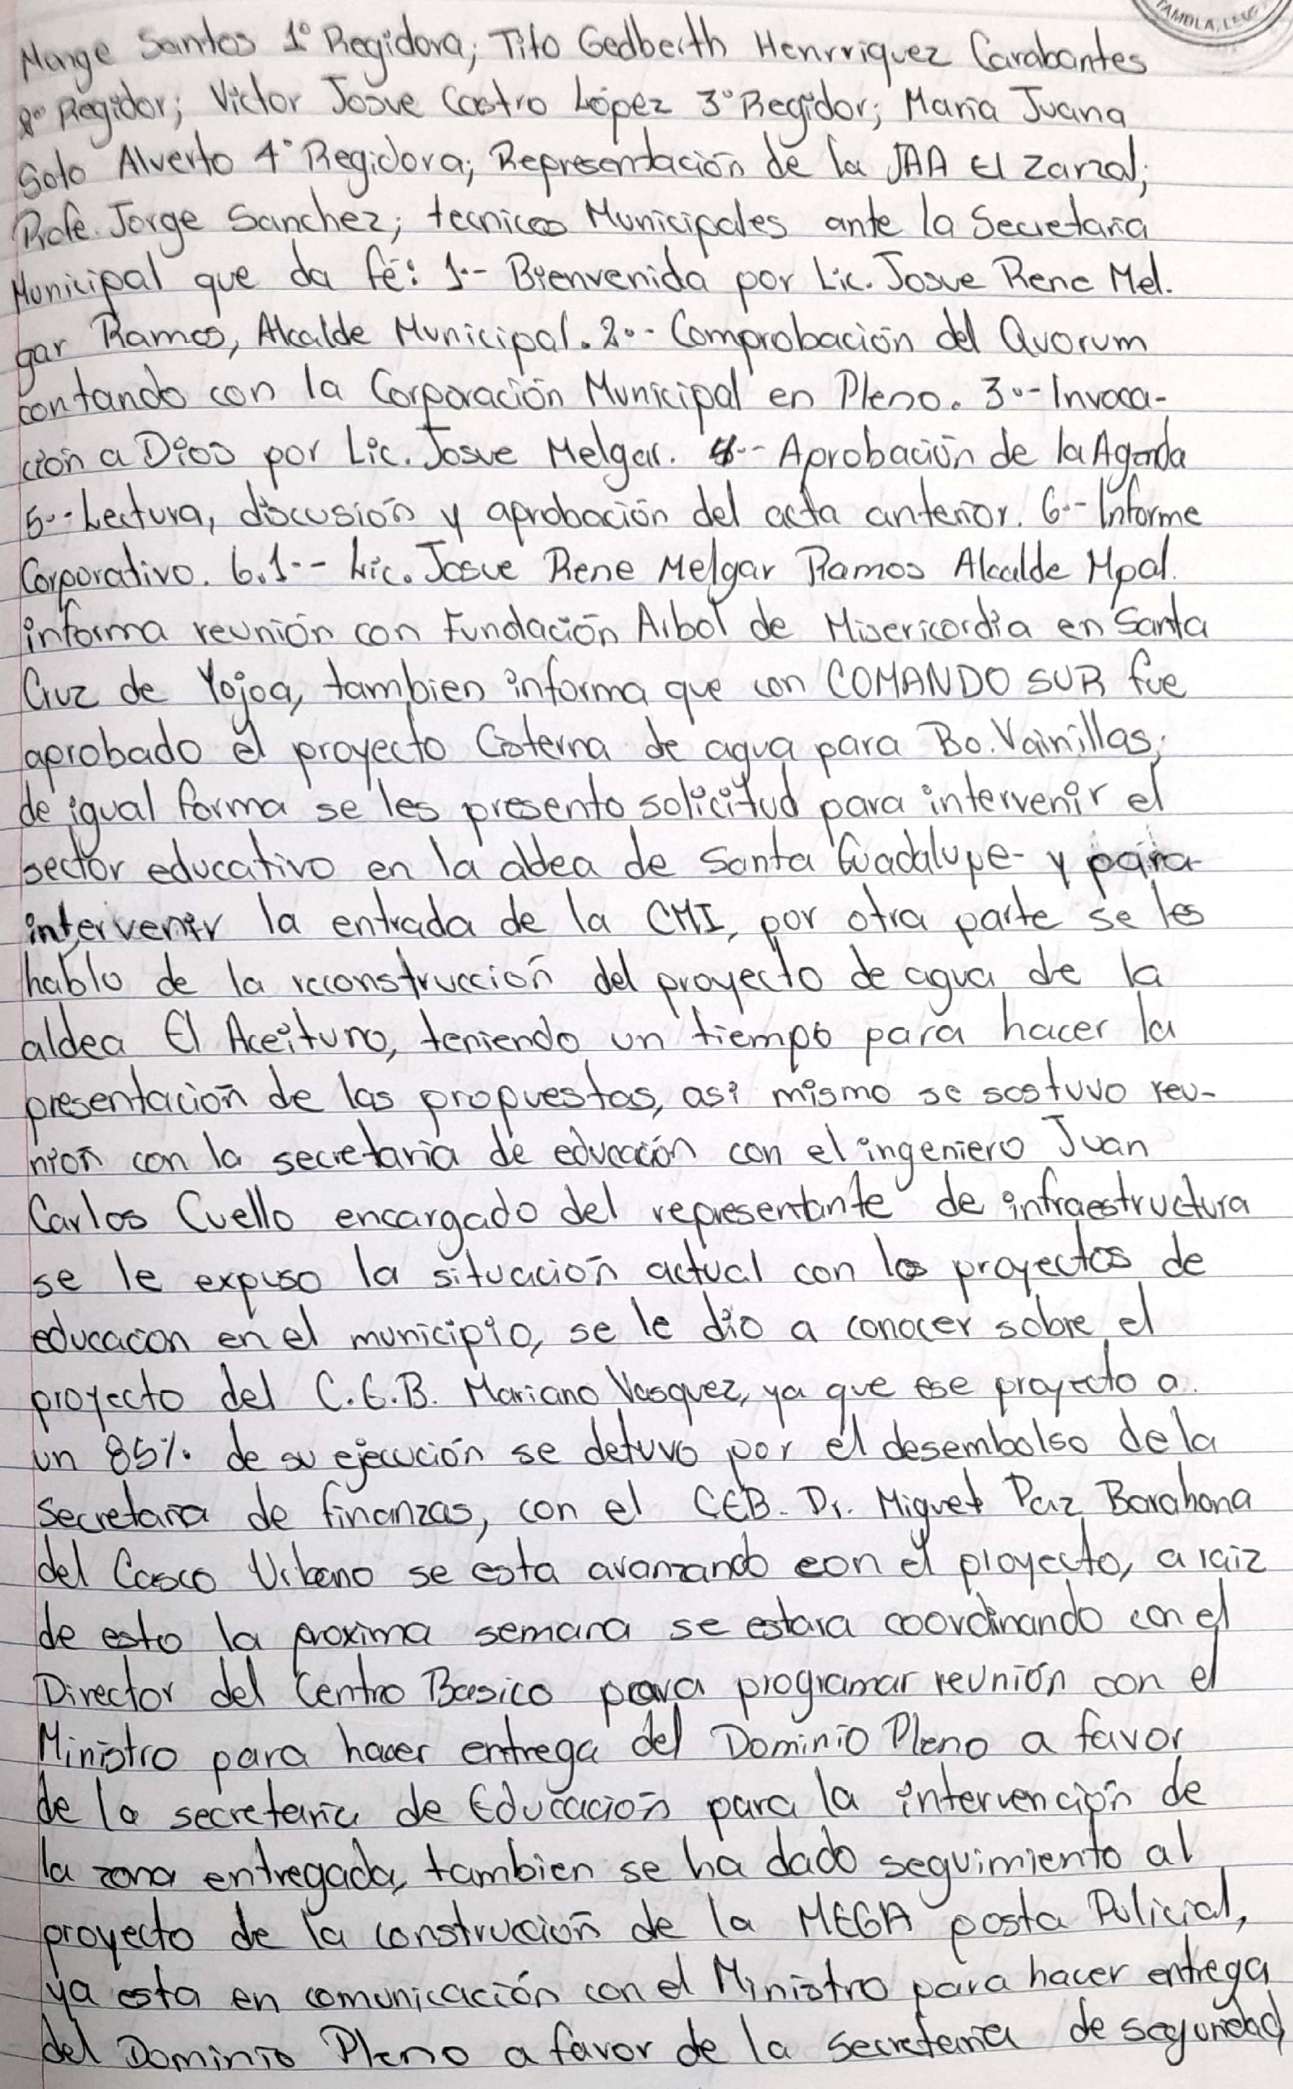 TAMBLA, LEM
Monge Santos 1° Regidora; Tito Gedberth Henrriquez Carabantes
2° Regidor; Victor Josue Castro López 3° Regidor; Maria Juana
Soto Alverto 4° Regidora; Representación de la JAA El Zarzal;
Profe. Jorge Sanchez; tecnicos Municipales ante la Secretaria
Municipal que da fé: 1.- Bienvenida por Lic. Josue Rene Mel.
gar Ramos, Alcalde Municipal. 2.- Comprobación del Quorum
contando con la Corporación Municipal en Pleno. 3.- Invoca-
ción a Dios por Lic. Josue Melgar. 4.- Aprobación de la Agenda
5.- Lectura, discusión y aprobación del acta anterior. 6.- Informe
Corporativo. 6.1.- Lic. Josue Rene Melgar Ramos Alcalde Mpal.
informa reunión con Fundación Arbol de Misericordia en Santa
Cruz de Yojoa, tambien informa que con COMANDO SUR fue
aprobado el proyecto Cisterna de agua para Bo. Vainillas;
de igual forma se les presento solicitud para intervenir el
sector educativo en la aldea de Santa Guadalupe y para
intervenir la entrada de la CMI, por otra parte se les
hablo de la reconstrucción del proyecto de agua de la
aldea El Aceituno, teniendo un tiempo para hacer la
presentación de las propuestas, asi mismo se sostuvo reu-
nión con la secretaria de educación con el ingeniero Juan
Carlos Cuello encargado del representante de infraestructura
se le expuso la situación actual con los proyectos de
educacion en el municipio, se le dio a conocer sobre el
proyecto del C.E.B. Mariano Vasquez, ya que ese proyecto a
un 85% de su ejecución se detuvo por el desembolso de la
secretaria de finanzas, con el CEB. Dr. Miguel Paz Barahona
del Casco Urbano se esta avanzando con el proyecto, a raiz
de esto la proxima semana se estara coordinando con el
Director del Centro Basico para programar reunión con el
Ministro para hacer entrega del Dominio Pleno a favor
de la secretaria de Educación para la intervención de
la zona entregada, tambien se ha dado seguimiento al
proyecto de la construcion de la MEGA posta Policial,
ya esta en comunicación con el Ministro para hacer entrega
del Dominio Pleno a favor de la secretaria de seguridad